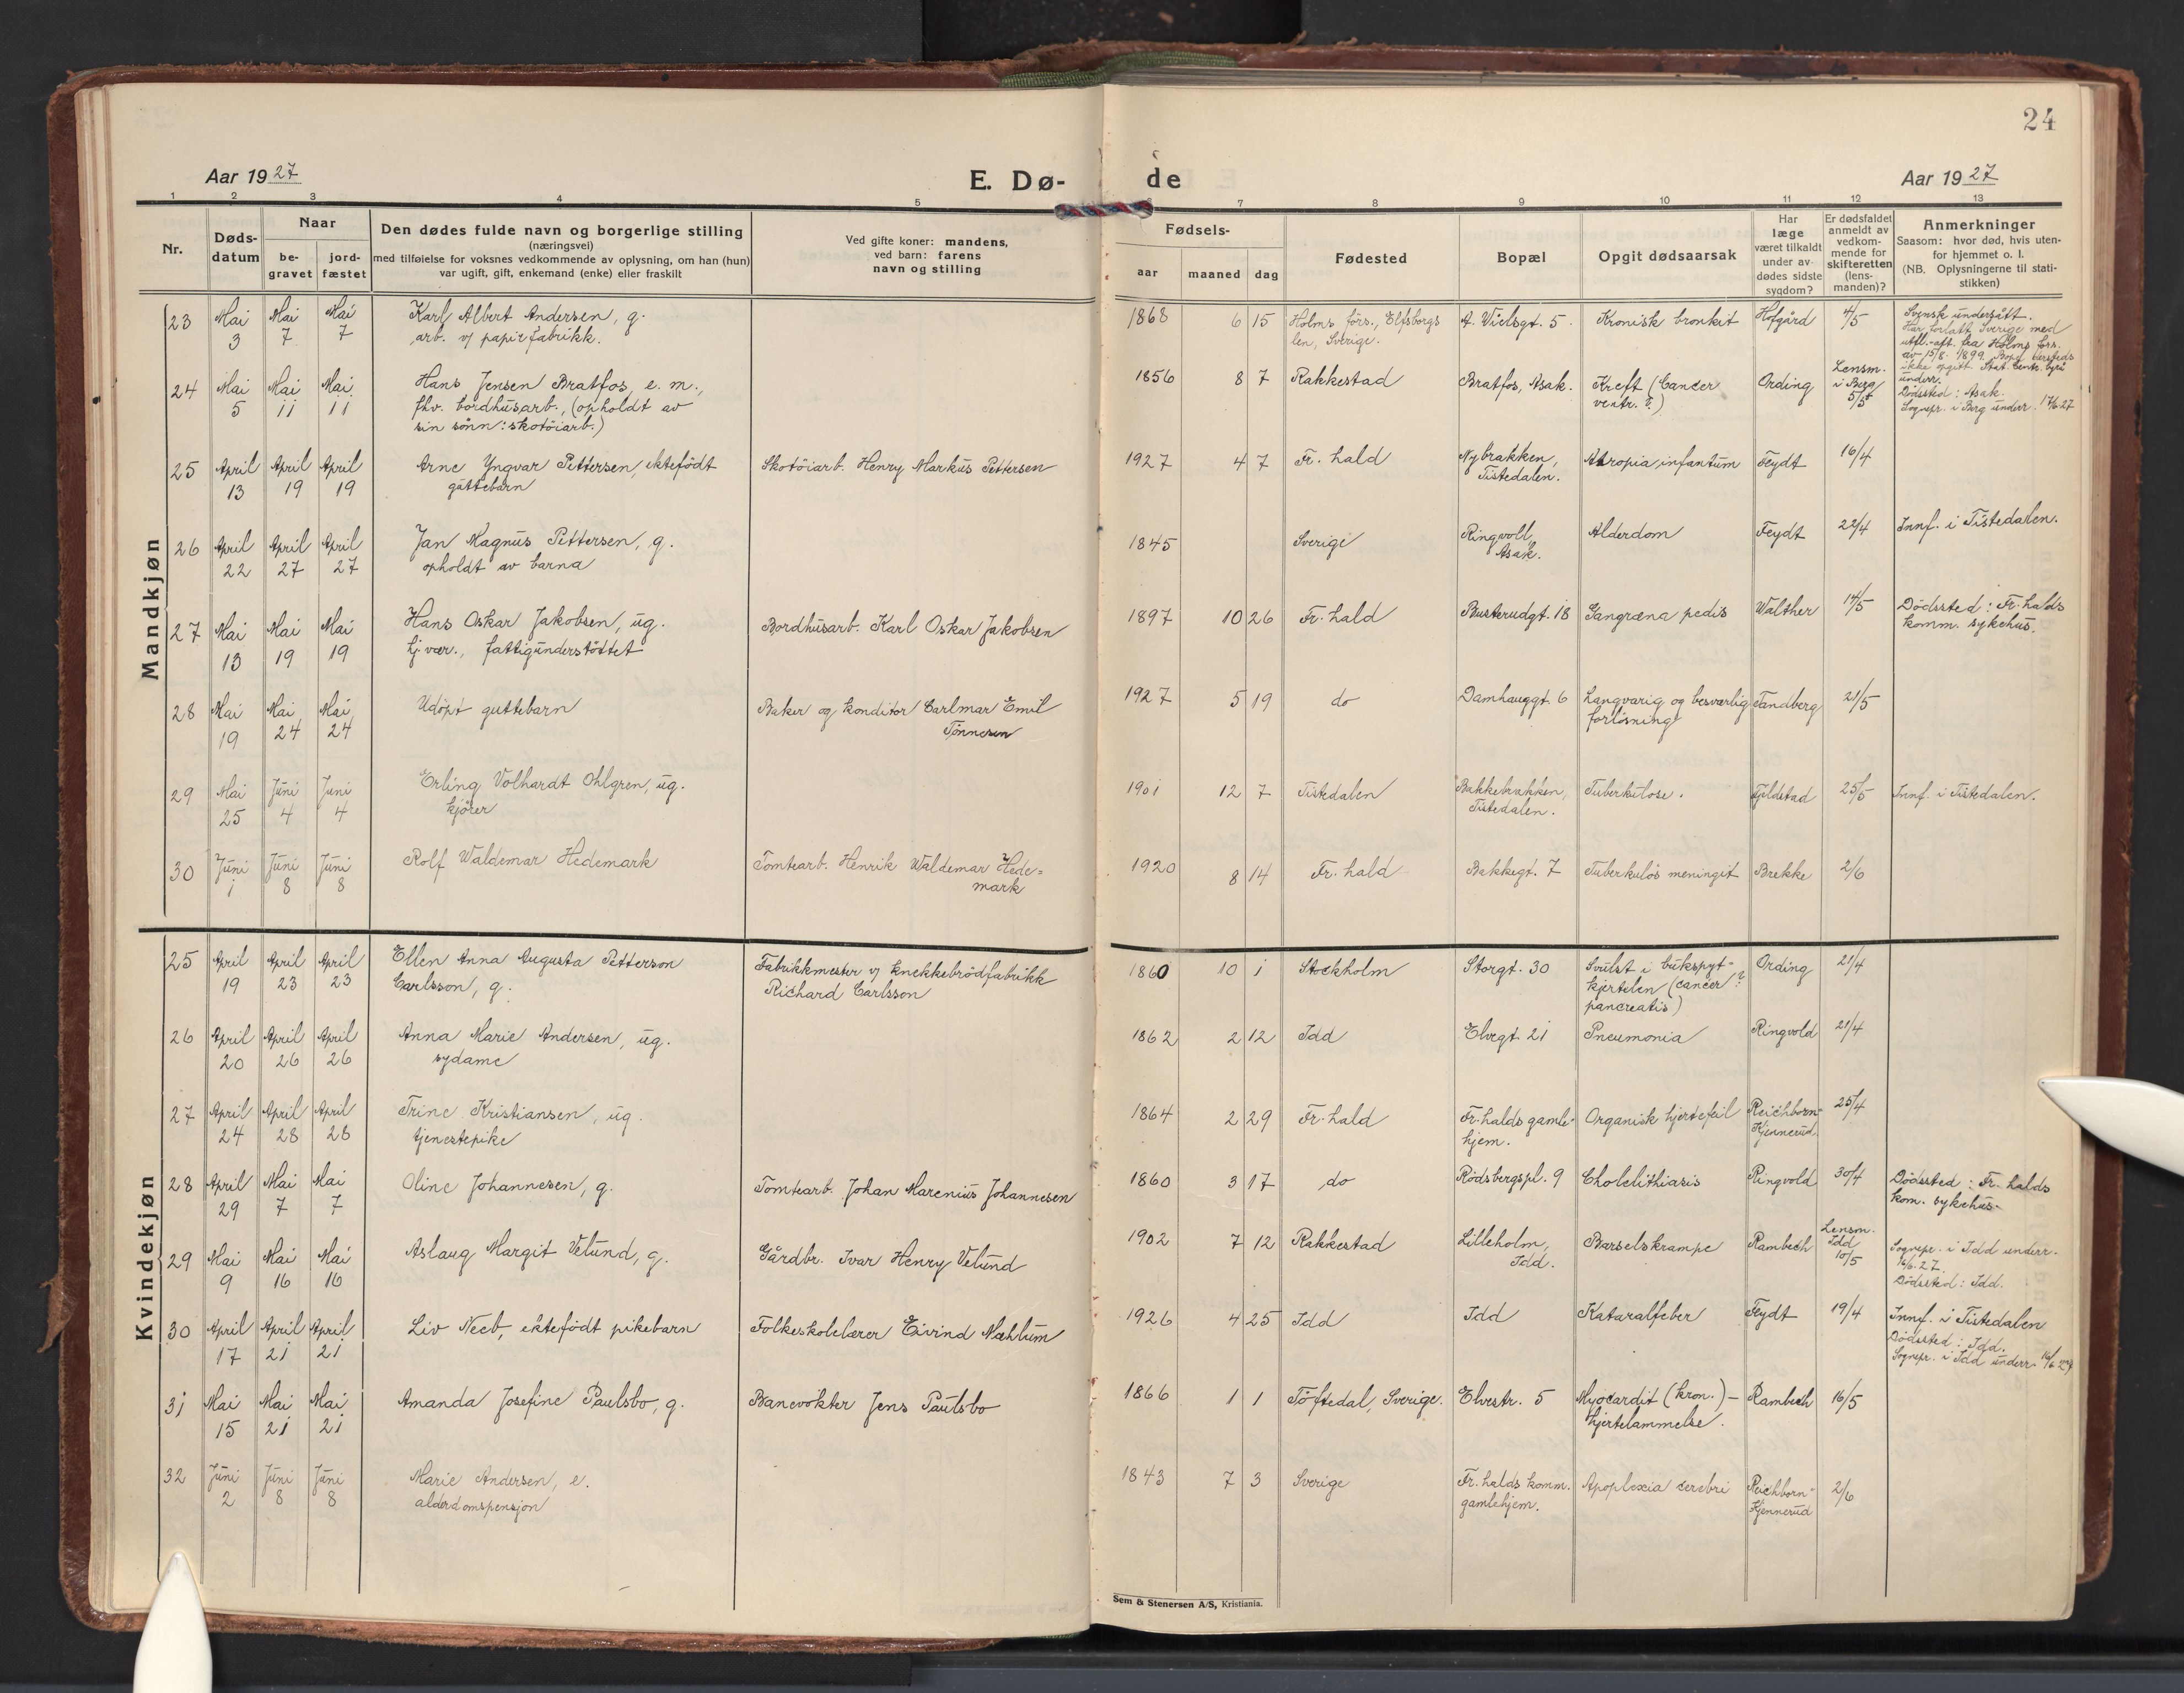 24
Aar 1927
E. Dø-
de
Aar 1927
1 2 3 4 5 6 7 8 9 10 11 12 13
Nr.
Døds-
datum
Naar
be-
gravet
jord-
fæstet
Den dødes fulde navn og borgerlige stilling
(næringsvei)
med tilføielse for voksnes vedkommende av oplysning, om han (hun)
var ugift, gift, enkemand (enke) eller fraskilt
Ved gifte koner: mandens,
ved barn: farens
navn og stilling
Fødsels-
aar maaned dag
Fødested
Bopæl
Opgit dødsaarsak
Har
læge
været tilkaldt
under av-
dødes sidste
sygdom?
Er dødsfaldet
anmeldt av
vedkom-
mende for
skifteretten
(lens-
manden)?
Anmerkninger
Saasom: hvor død, hvis uten-
for hjemmet o. l.
(NB. Oplysningerne til stati-
stikken)
Mandkjøn
23 Mai 3 Mai 7 Mai 7
Karl Albert Andersen, g.
arb. v/ papirfabrikk.
1868 6 15
Holms förs., Elfsborgs
len, Sverige.
A. Vielsgt. 5.
Kronisk bronkit
Hofgård
4/5
Svensk undersått.
Har forlatt Sverige med
utfl.-att. fra Holms förs.
av 15/8 1899. Bopæl
ikke opgitt. Stat. Centr. byrå
underr.
24 Mai 5 Mai 11 Mai 11
Hans Jensen Bratfos, e. m.,
fhv. bordhusarb., (opholdt av
sin sønn: skotöiarb.)
1856 8 7
Rakkestad
Bratfos, Asak.
Kreft (Cancer
ventr.?)
Ording
Lensm.
i Berg
5/5
Dödssted: Asak.
Sognepr. i Berg underr. 17/6 27
25 April 13 April 19 April 19
Arne Yngvar Pettersen, ektefödt
guttebarn
Skotöiarb. Henry Markus Pettersen
1927 4 7
Fr. hald
Nybrakken,
Tistedalen.
Atropia infantum
Feydt
16/4
26 April 22 April 27 April 27
Jan Magnus Pettersen, g.
opholdt av barna
1845
Sverige
Ringvoll,
Asak.
Alderdom
Feydt
22/4
Innf. i Tistedalen.
27 Mai 13 Mai 19 Mai 19
Hans Oskar Jakobsen, ug.
hj.vær., fattigunderstöttet
Bordhusarb. Karl Oskar Jakobsen
1897 10 26
Fr. hald
Busterudgt. 18
Gangræna pedis
Walther
14/5
Dödssted: Fr. halds
komm. sykehus.
28 Mai 19 Mai 24 Mai 24
Udöpt guttebarn
Baker og konditor Carlmar Emil
Tönnesen
1927 5 19
do
Damhauggt. 6
Langvarig og besværlig
forlösning
Tandberg
21/5
29 Mai 25 Juni 4 Juni 4
Erling Volhardt Ohlgren, ug.
kjörer
1901 12 7
Tistedalen
Bakkebrakken,
Tistedalen.
Tuberkulose.
Fjeldstad
25/5
Innf. i Tistedalen.
30 Juni 1 Juni 8 Juni 8
Rolf Waldemar Hedemark
Tomtearb. Henrik Waldemar Hede=
mark
1920 8 14
Fr. hald
Bakkegt. 7
Tuberkulös meningit
Brekke
2/6
Kvindekjøn
25 April 19 April 23 April 23
Ellen Anna Augusta Petterson
Carlsson, g.
Fabrikkmester v/ knekkebrödfabrikk
Richard Carlsson
1860 10 1
Stockholm
Storgt. 30
Svulst i bukspyt-
kjertelen (cancer
pancreatis) ?
Ording
21/4
26 April 20 April 26 April 26
Anna Marie Andersen, ug.
sydame
1862 2 12
Idd
Elvegt. 21
Pneumonia
Ringvold
21/4
27 April 24 April 28 April 28
Trine Kristiansen, ug.
tjenestepike
1864 2 29
Fr. hald
Fr. halds gamle-
hjem.
Organisk hjertefeil
Reichborn-
Kjennerud.
25/4
28 April 29 Mai 7 Mai 7
Oline Johannesen, g.
Tomtearb. Johan Marenius Johannesen
1860 3 17
do
Rödsbergspl. 9
Cholelithiasis
Ringvold
30/4
Dödssted: Fr. halds
kom. sykehus.
29 Mai 9 Mai 16 Mai 16
Aslaug Margit Velund, g.
Gårdbr. Ivar Henry Velund
1902 7 12
Rakkestad
Lilleholm,
Idd.
Barselskrampe
Rambech
Lensm.
Idd
10/5
Sognepr. i Idd underr.
16/6 27.
Dödssted: Idd.
30 April 17 April 21 April 21
Liv Neeb, ektefödt pikebarn
Folkeskolelærer Eivind Næhlum
1926 4 25
Idd
Idd
Kataralfeber
Feydt
19/4
Innf. i Tistedalen
Dödssted: Idd.
Sognepr. i Idd underr. 16/6 27
31 Mai 15 Mai 21 Mai 21
Amanda Josefine Paulsbo, g.
Banevokter Jens Paulsbo
1866 1 1
Töftedal, Sverige.
Elvestr. 5
Myocardit (kron.) -
hjertelammelse.
Rambech
16/5
32 Juni 2 Juni 8 Juni 8
Marie Andersen, e.
alderdomspensjon
1843 7 3
Sverige
Fr. halds komm.
gamlehjem.
Apoplexia cerebri
Reichborn-
Kjennerud
2/6
Sem & Stenersen A/S, Kristiania.